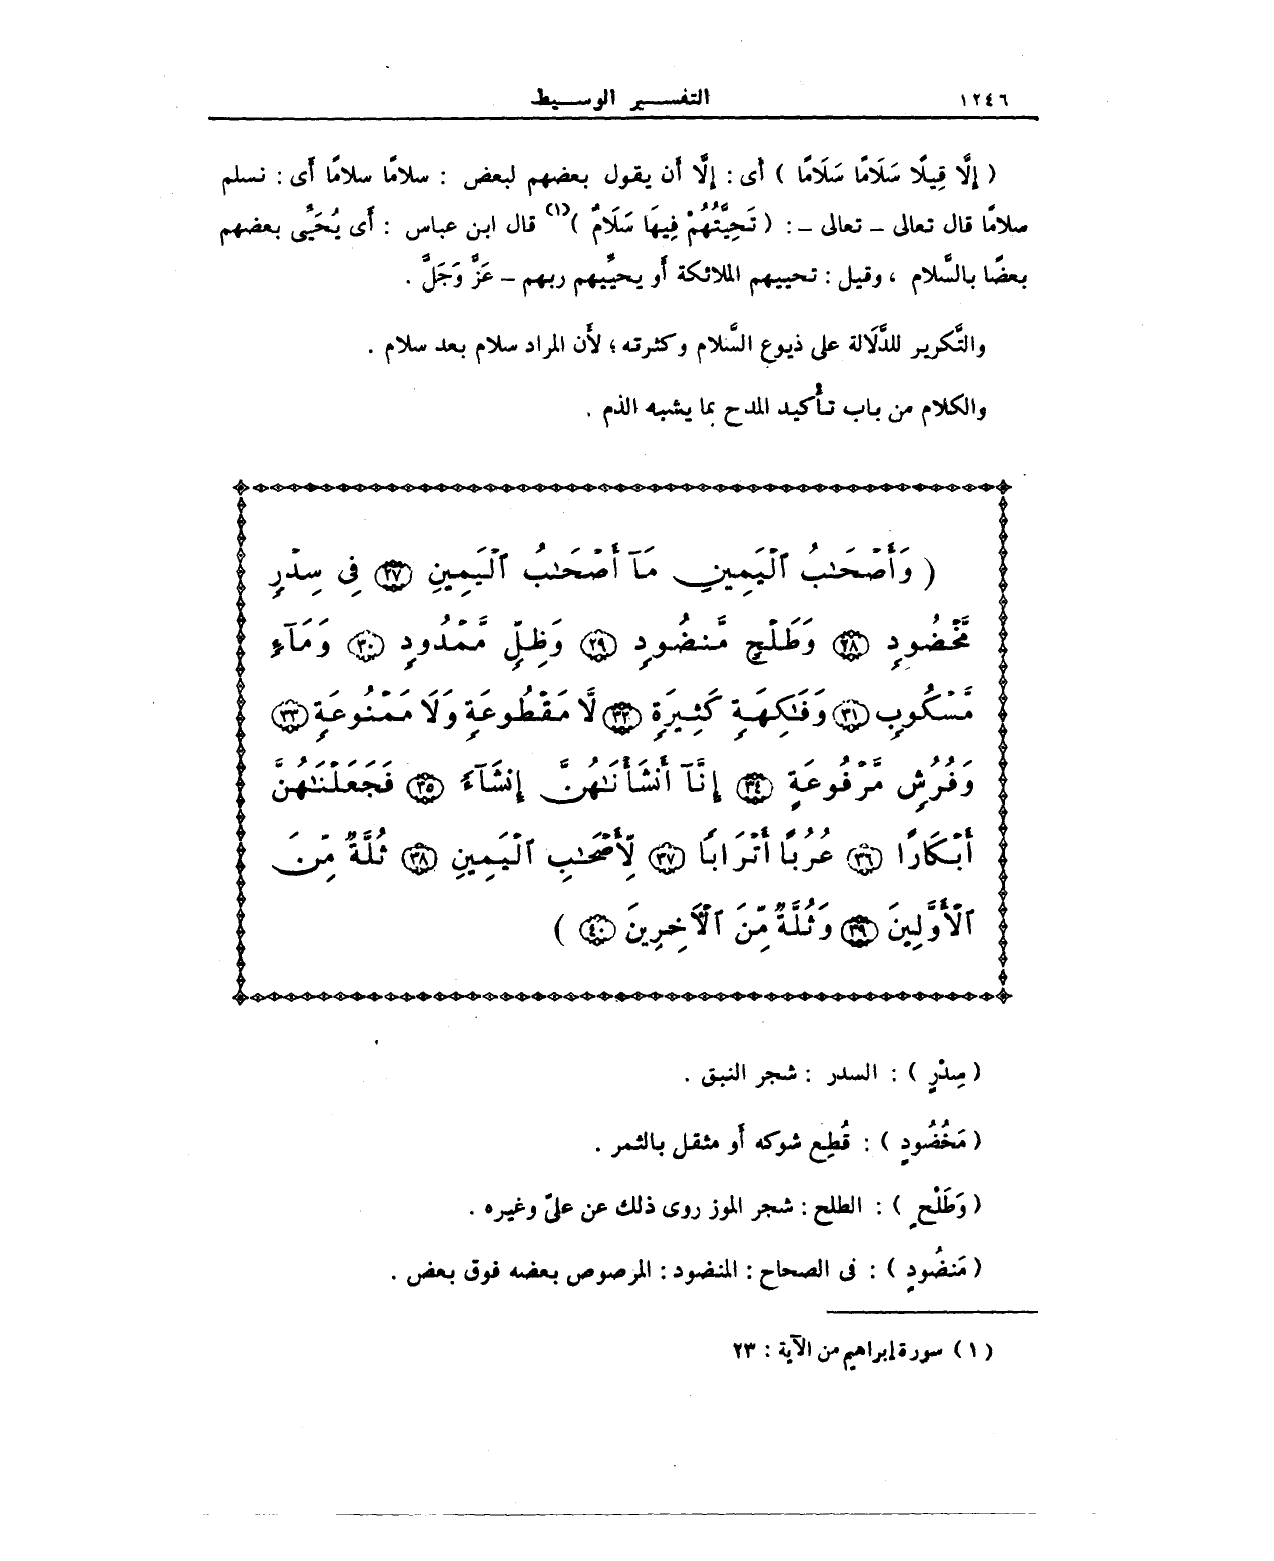 ١٢٤٦ التفسير الوسيط
( إِلَّا قِيلًا سَلَامًا سَلَامًا ) أى : إلَّا أن يقول بعضهم لبعض : سلامًا سلامًا أى : نسلم
سلامًا قال تعالى ـ تعالى ـ : ( تَحِيَّتُهُمْ فِيهَا سَلَامٌ )(١) قال ابن عباس : أى يُحَيِّى بعضهم
بعضًا بالسَّلام ، وقيل : تحييهم الملائكة أو يحيِّيهم ربهم ـ عَزَّ وَجَلَّ .
والتَّكرير للدَّلَالة على ذيوع السَّلام وكثرته ؛ لأن المراد سلام بعد سلام .
والكلام من باب تأكيد المدح بما يشبه الذم .
( وَأَصْحَٰبُ ٱلْيَمِينِ مَآ أَصْحَٰبُ ٱلْيَمِينِ ٢٧ فِى سِدْرٍ
مَّخْضُودٍ ٢٨ وَطَلْحٍ مَّنضُودٍ ٢٩ وَظِلٍّ مَّمْدُودٍ ٣٠ وَمَآءٍ
مَّسْكُوبٍ ٣١ وَفَٰكِهَةٍ كَثِيرَةٍ ٣٢ لَّا مَقْطُوعَةٍ وَلَا مَمْنُوعَةٍ ٣٣
وَفُرُشٍ مَّرْفُوعَةٍ ٣٤ إِنَّآ أَنشَأْنَٰهُنَّ إِنشَآءً ٣٥ فَجَعَلْنَٰهُنَّ
أَبْكَارًا ٣٦ عُرُبًا أَتْرَابًا ٣٧ لِّأَصْحَٰبِ ٱلْيَمِينِ ٣٨ ثُلَّةٌ مِّنَ
ٱلْأَوَّلِينَ ٣٩ وَثُلَّةٌ مِّنَ ٱلْأَخِرِينَ ٤٠ )
( سِدْرٍ ) : السدر : شجر النبق .
( مَخْضُودٍ ) : قُطِع شوكه أو مثقل بالثمر .
( وَطَلْحٍ ) : الطلح : شجر الموز روى ذلك عن علىّ وغيره .
( مَنضُودٍ ) : فى الصحاح : المنضود : المرصوص بعضه فوق بعض .
( ١ ) سورة إبراهيم من الآية : ٢٣